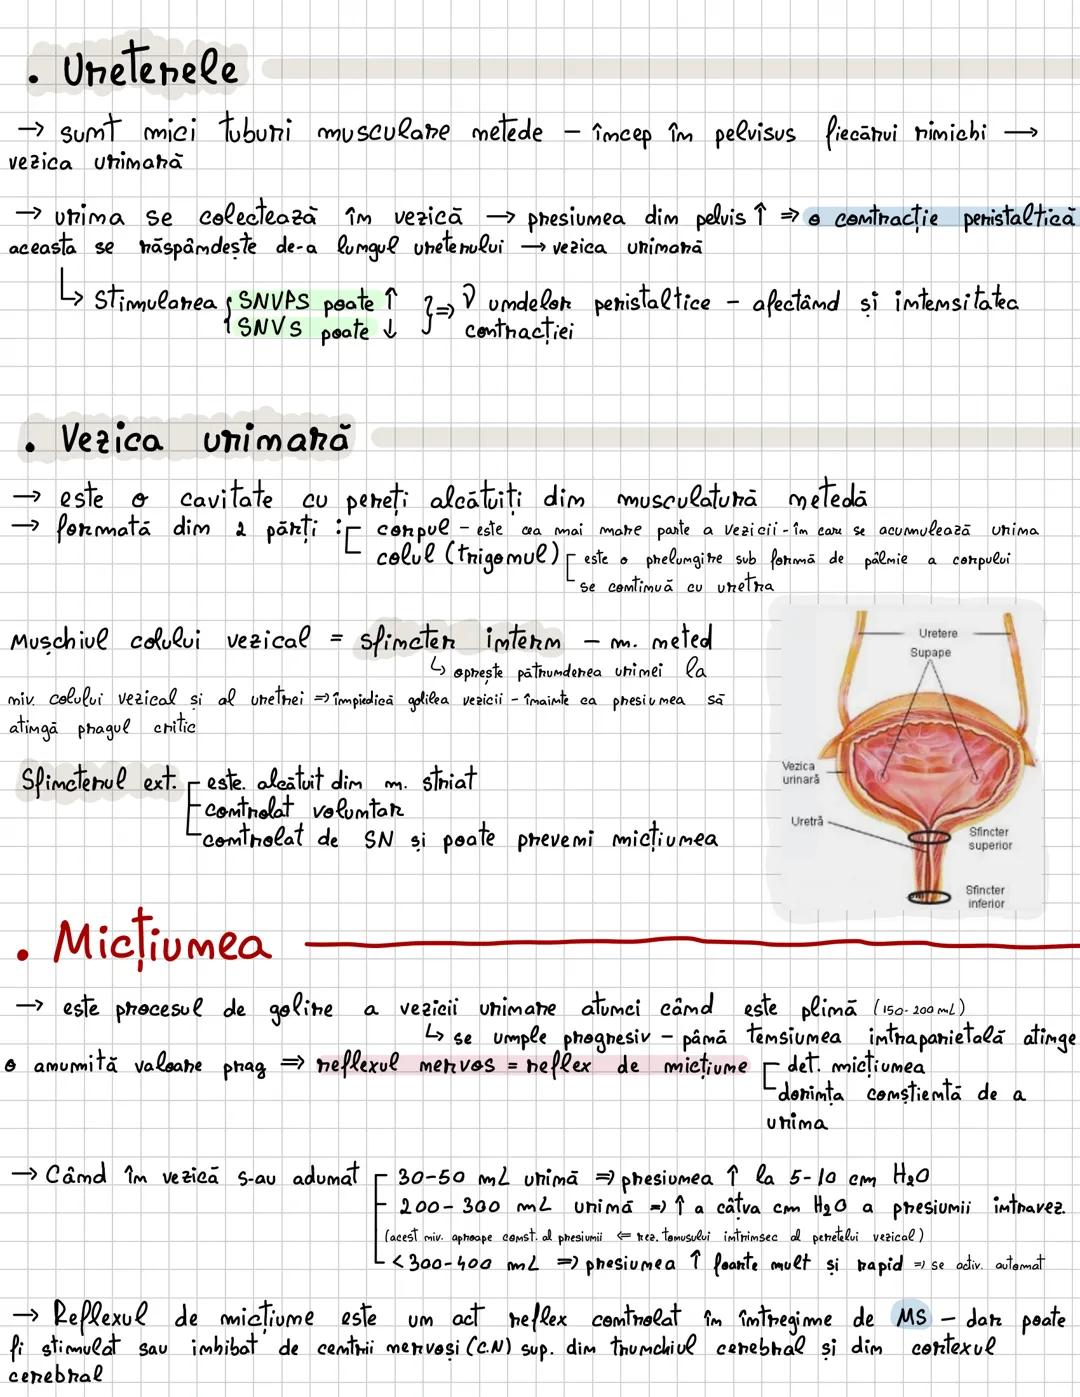 • Ureterele
→ sunt mici tuburi musculare netede – încep în pelvisus fiecărui rinichi →
vezica urinară
→ urina se colectează în vezică → presiunea din pelvis ↑ ⇒ o contracție peristaltică
aceasta se răspândește de-a lungul ureterului → vezica urinară
↳ Stimularea { SNVPS poate ↑ } ⇒ ν undelor peristaltice – afectând și intensitatea
SNVS poate ↓ contracției
• Vezica urinară
→ este o cavitate cu pereți alcătuiți din musculatură netedă
→ formată din 2 părți : corpul – este cea mai mare parte a vezicii - în care se acumulează urina
colul (trigonul) este o prelungire sub formă de pâlnie a corpului
se continuă cu uretra
Mușchiul colului vezical = sfincter intern – m. neted
↳ oprește pătrunderea urinei la
niv. colului vezical și al uretrei ⇒ împiedică golirea vezicii - înainte ca presiunea să
atingă pragul critic
Sfincterul ext. este. alcătuit din m. striat
controlat voluntar
controlat de SN și poate preveni micțiunea
Uretere
Supape
Vezica
urinară
Uretră
Sfincter
superior
Sfincter
inferior
• Micțiunea
→ este procesul de golire a vezicii urinare atunci când este plină (150-200 mL)
↳ se umple progresiv – până tensiunea intraparietală atinge
o anumită valoare prag ⇒ reflexul nervos = reflex de micțiune det. micțiunea
dorința conștientă de a
urina
→ Când în vezică s-au adunat 30-50 mL urină ⇒ presiunea ↑ la 5-10 cm H₂O
200-300 mL urină ⇒ ↑ a câtva cm H₂O a presiunii intravez.
(acest niv. aproape const. al presiunii ⇐ rez. tonusului intrinsec al peretelui vezical)
<300-400 mL ⇒ presiunea ↑ foarte mult și rapid ⇒ se activ. automat
→ Reflexul de micțiune este un act reflex controlat în întregime de MS – dar poate
fi stimulat sau inhibat de centrii nervoși (C.N) sup. din trunchiul cerebral și din cortexul
cerebral